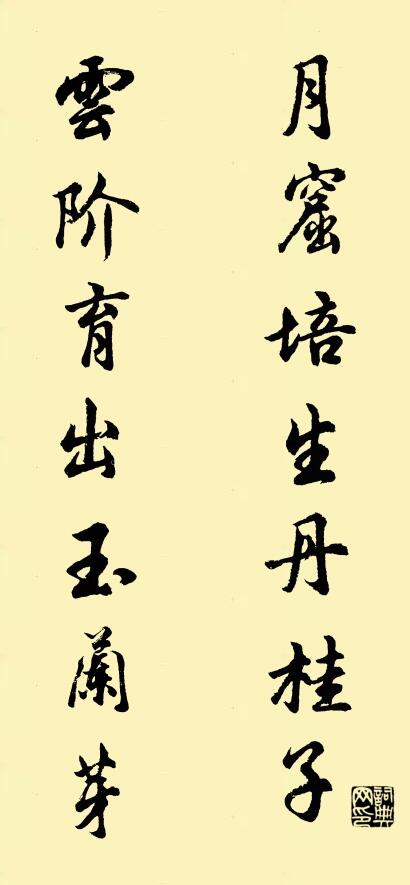 月窟培生丹桂子
雲阶育出玉蘭芽
詞典网印